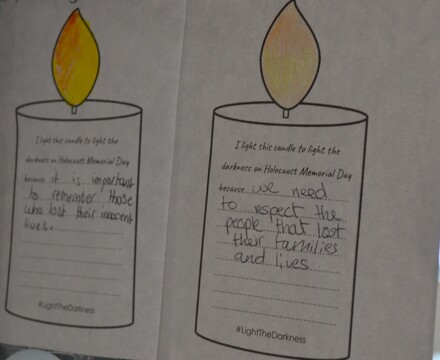 I light this candle to light the
darkness on Holocaust Memorial Day
because it is important
to remember those
who lost their innocent
lives.
#LightTheDarkness
I light this candle to light the
darkness on Holocaust Memorial Day
because we need
to respect the
people that lost
their families
and lives
#LightTheDarkness